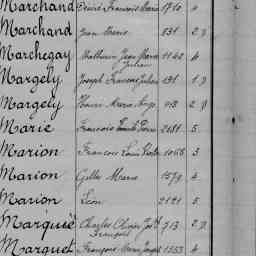 Marchand Désiré François Marie 1710 4
Marchand Jean Marie 131 2
Marchegay Mathurin Jean Pierre 1142 4
Julien
Margely Joseph François Julien 191 1
Margely Louis Marie Ange 2
Marie François Émile Pierre 2
Marion François Louis Victor 1066 3
Marion Gilles Marie 1579 4
Marion Léon 2121 5
Marquié Charles Olivier Jos 713 2
François
Marquet François Marie Joseph 1553 4